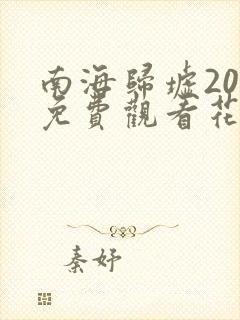 南海歸墟20
免費觀看花
秦妤